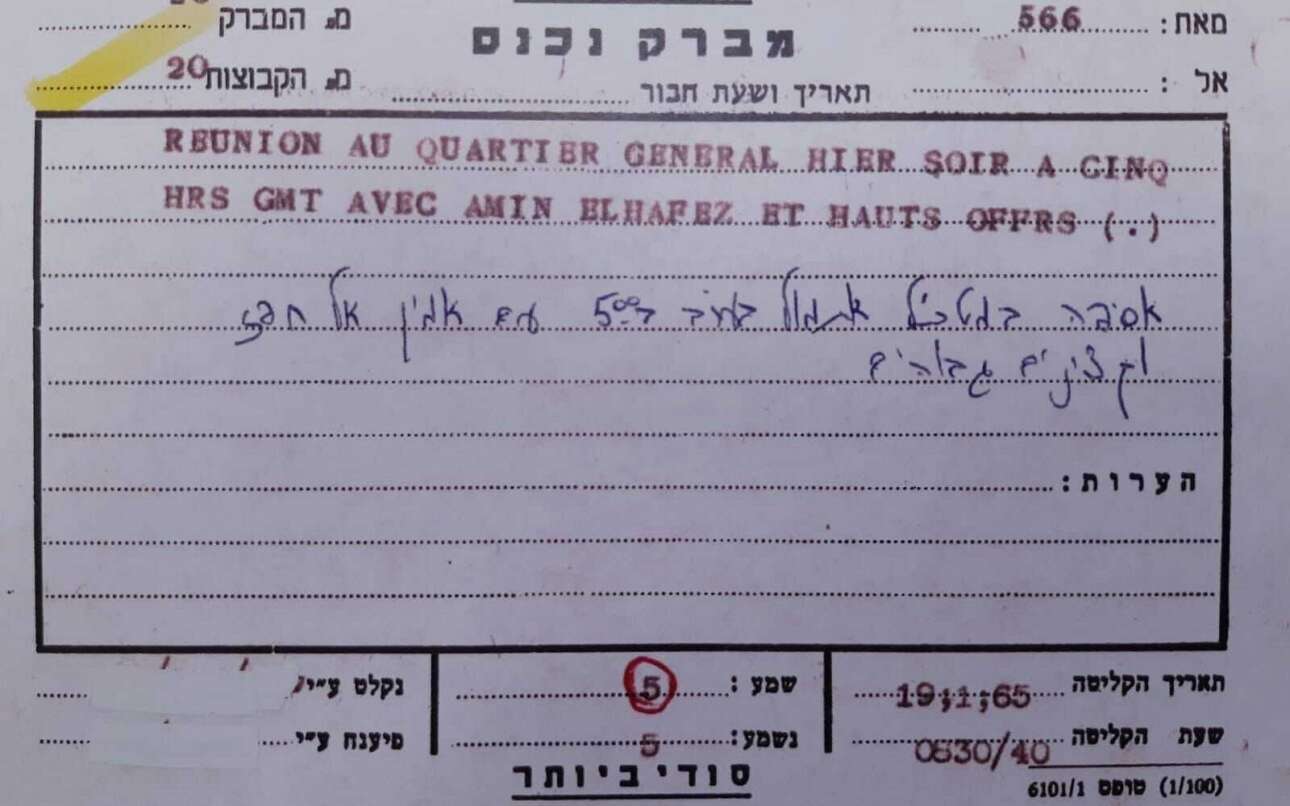 מאת: 566
מברק נכנס
מ. המברק
אל :
תאריך ושעת חבור
מ. הקבוצות 20
REUNION AU QUARTIER GENERAL HIER SOIR A CINQ
HRS GMT AVEC AMIN ELHAFEZ ET HAUTS OFFRS (.)
אסיפה במטכ"ל אתמול בערב ב-5⁰⁰ עם אמין אל חפז
וקצינים גבוהים
הערות:
תאריך הקליטה 19;1;65
שמע : 5
נקלט ע״י
שעת הקליטה 0830/40
נשמע: 5
פיענח ע״י
סודי ביותר
(1/100) טופס 6101/1